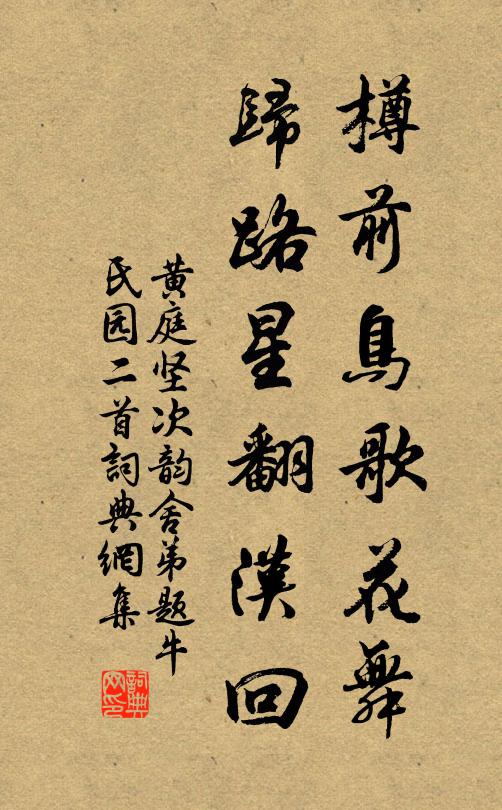 樽前鳥歌花舞
歸路星翻漢回
黄庭坚次韵舍弟题牛
民园二首詞典網集
詞典网印